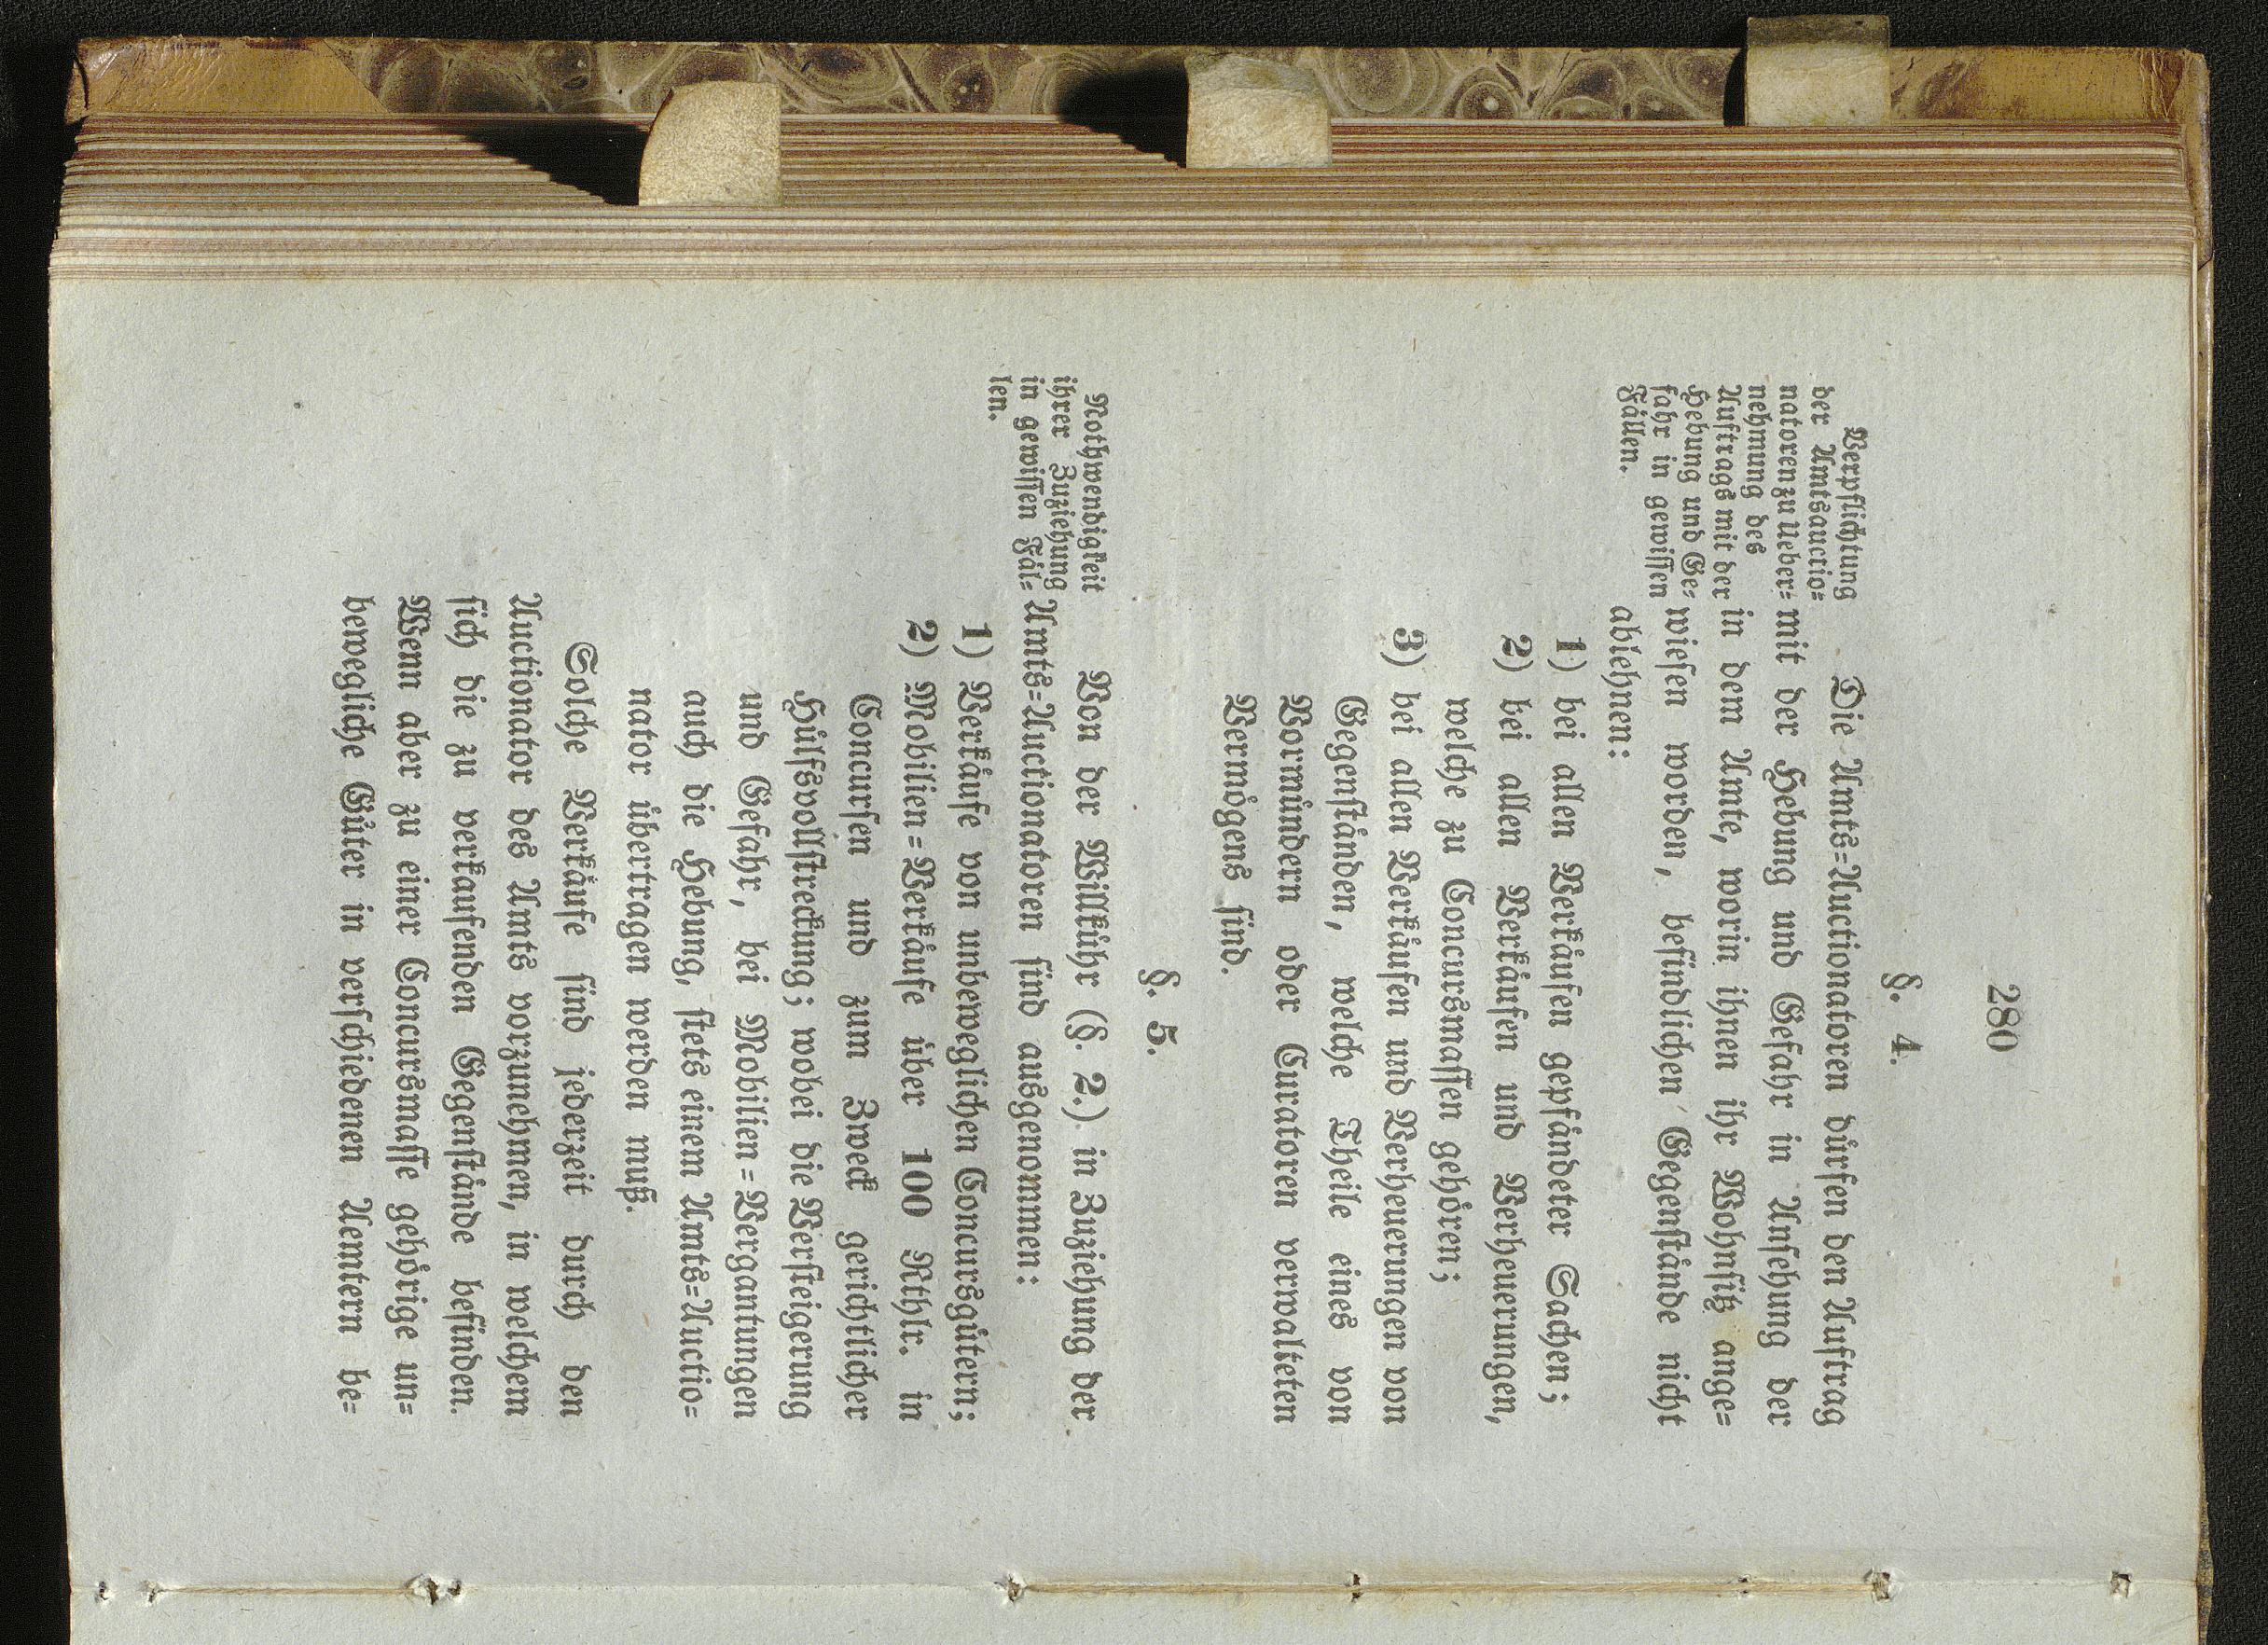 280
§. 4.
Verpflichtung
der Amtsauctio=
natoren zu Ueber=
nehmung des
Auftrags mit der
Hebung und Ge=
fahr in gewissen
Fällen.
Die Amts=Auctionatoren dürfen den Auftrag
mit der Hebung und Gefahr in Ansehung der
in dem Amte, worin ihnen ihr Wohnsitz ange=
wiesen worden, befindlichen Gegenstände nicht
ablehnen:
1) bei allen Verkäufen gepfändeter Sachen;
2) bei allen Verkäufen und Verheuerungen,
welche zu Concursmassen gehören;
3) bei allen Verkäufen und Verheuerungen von
Gegenständen, welche Theile eines von
Vormündern oder Curatoren verwalteten
Vermögens sind.
§. 5.
Nothwendigkeit
ihrer Zuziehung
in gewissen Fäl=
len.
Von der Willkühr (§. 2.) in Zuziehung der
Amts=Auctionatoren sind ausgenommen:
1) Verkäufe von unbeweglichen Concursgütern;
2) Mobilien=Verkäufe über 100 Rthlr. in
Concursen und zum Zweck gerichtlicher
Hülfsvollstreckung; wobei die Versteigerung
und Gefahr, bei Mobilien=Vergantungen
auch die Hebung, stets einem Amts=Auctio=
nator übertragen werden muß.
Solche Verkäufe sind jederzeit durch den
Auctionator des Amts vorzunehmen, in welchem
sich die zu verkaufenden Gegenstände befinden.
Wenn aber zu einer Concursmasse gehörige un=
bewegliche Güter in verschiedenen Aemtern be=